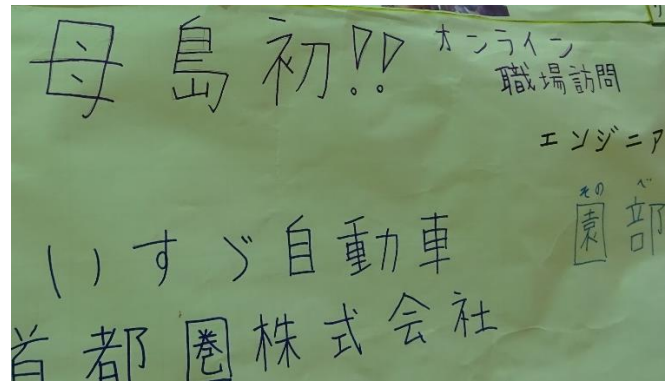 母島初!!
オンライン
職場訪問
エンジニア
その べ
園部
いすゞ自動車
首都圏株式会社